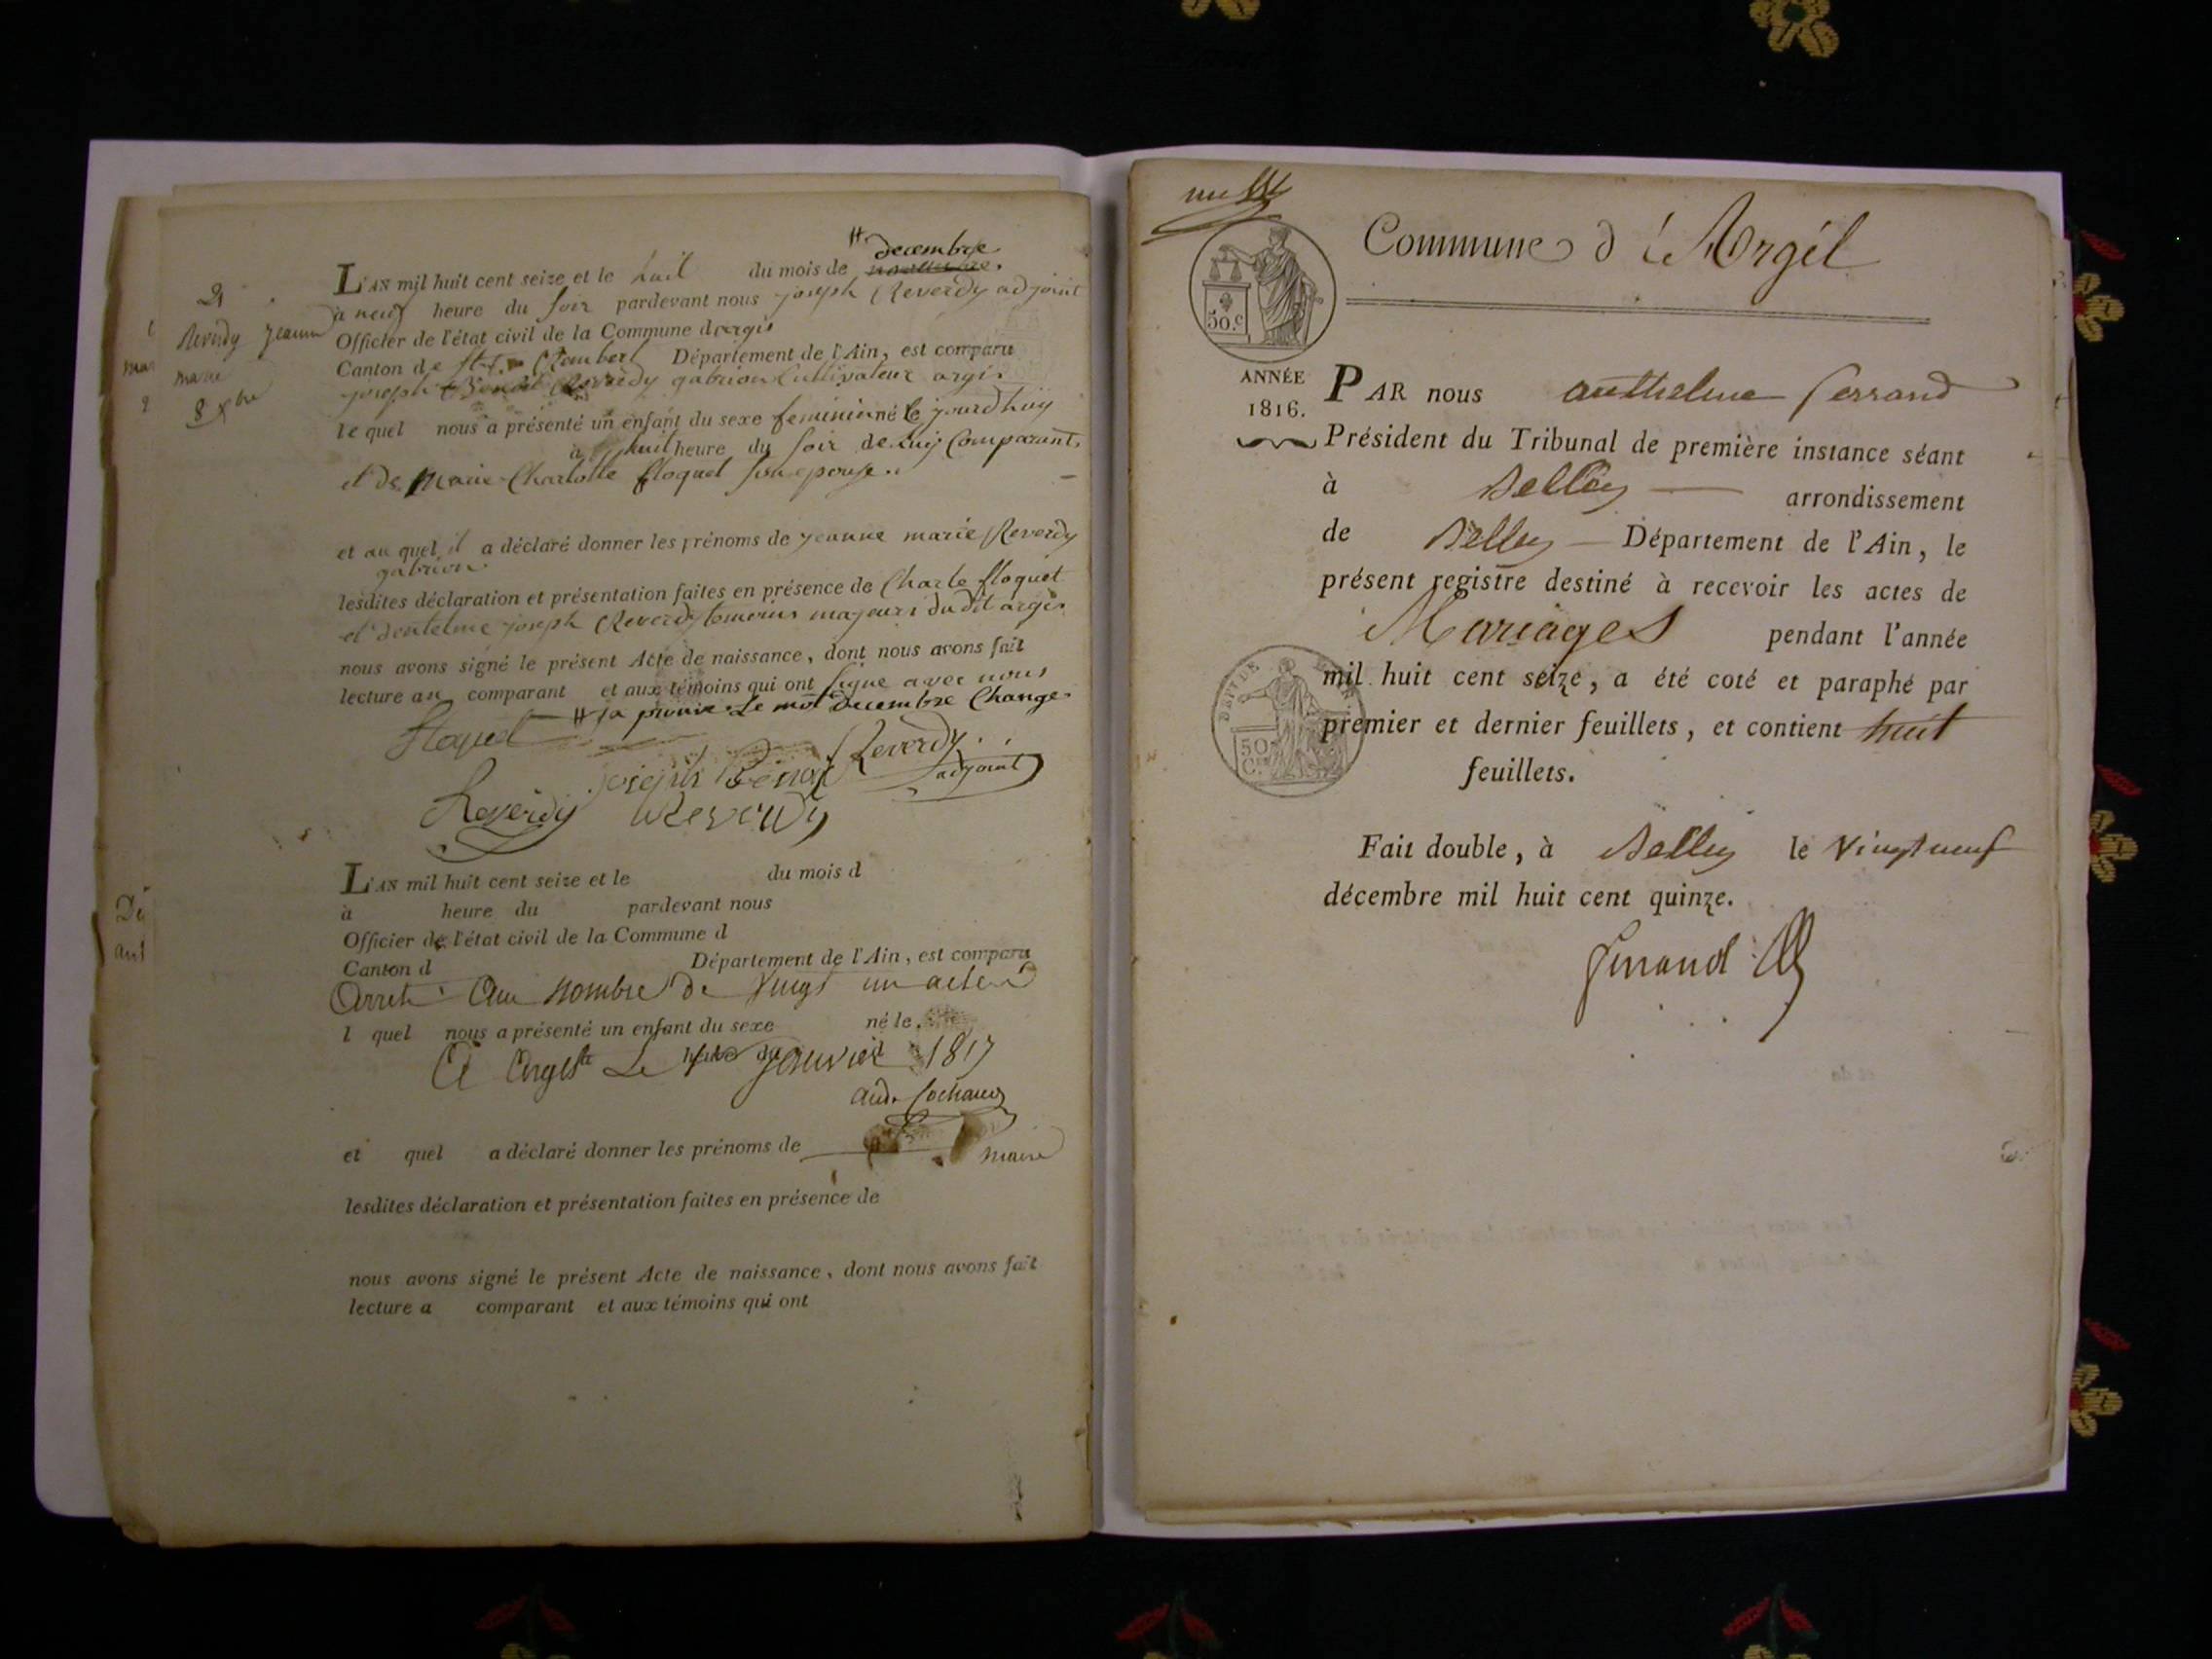 21
Reverdy Jeanne
marie
8 Xbre
# decembre
L'AN mil huit cent seize et le huit du mois de novembre.
à neuf heure du soir pardevant nous joseph Reverdy adjoint
Officier de l'état civil de la Commune dargis
Canton de St. Rambert Département de l'Ain, est comparu
joseph Benoit Reverdy gabrion Cultivateur argis
le quel nous a présenté un enfant du sexe feminin né le jourdhuy
à huit heure du soir de luy Comparant
et de Marie Charlotte floquet son epouse
et au quel il a déclaré donner les prénoms de jeanne marie Reverdy
gabrion.
lesdites déclaration et présentation faites en présence de Charle floquet
et antelme joseph Reverdy temoins majeurs du dit argis
nous avons signé le présent Acte de naissance, dont nous avons fait
lecture au comparant et aux témoins qui ont signe avec nous
# Le mot decembre Change
floquet
Reverdy
joseph Benoit
adjoint
Reverdy Reverdy
L'AN mil huit cent seize et le du mois d
à heure du pardevant nous
Officier de l'état civil de la Commune d
Canton d Département de l'Ain, est comparu
Arreté Au nombre de vingt un actes
l quel nous a présenté un enfant du sexe né le
à heure du
A argis Le janvier 1817
And. Cochaud
et quel a déclaré donner les prénoms de
maire
lesdites déclaration et présentation faites en présence de
nous avons signé le présent Acte de naissance, dont nous avons fait
lecture a comparant et aux témoins qui ont
Commune d'Argis
50.c
ANNÉE
1816.
PAR nous anthelme Ferrand
Président du Tribunal de première instance séant
à Belley arrondissement
de Belley Département de l'Ain, le
présent registre destiné à recevoir les actes de
Mariages pendant l'année
mil huit cent seize, a été coté et paraphé par
premier et dernier feuillets, et contient huit
feuillets.
50
C.
Fait double, à Belley le vingt neuf
décembre mil huit cent quinze.
Ferrand